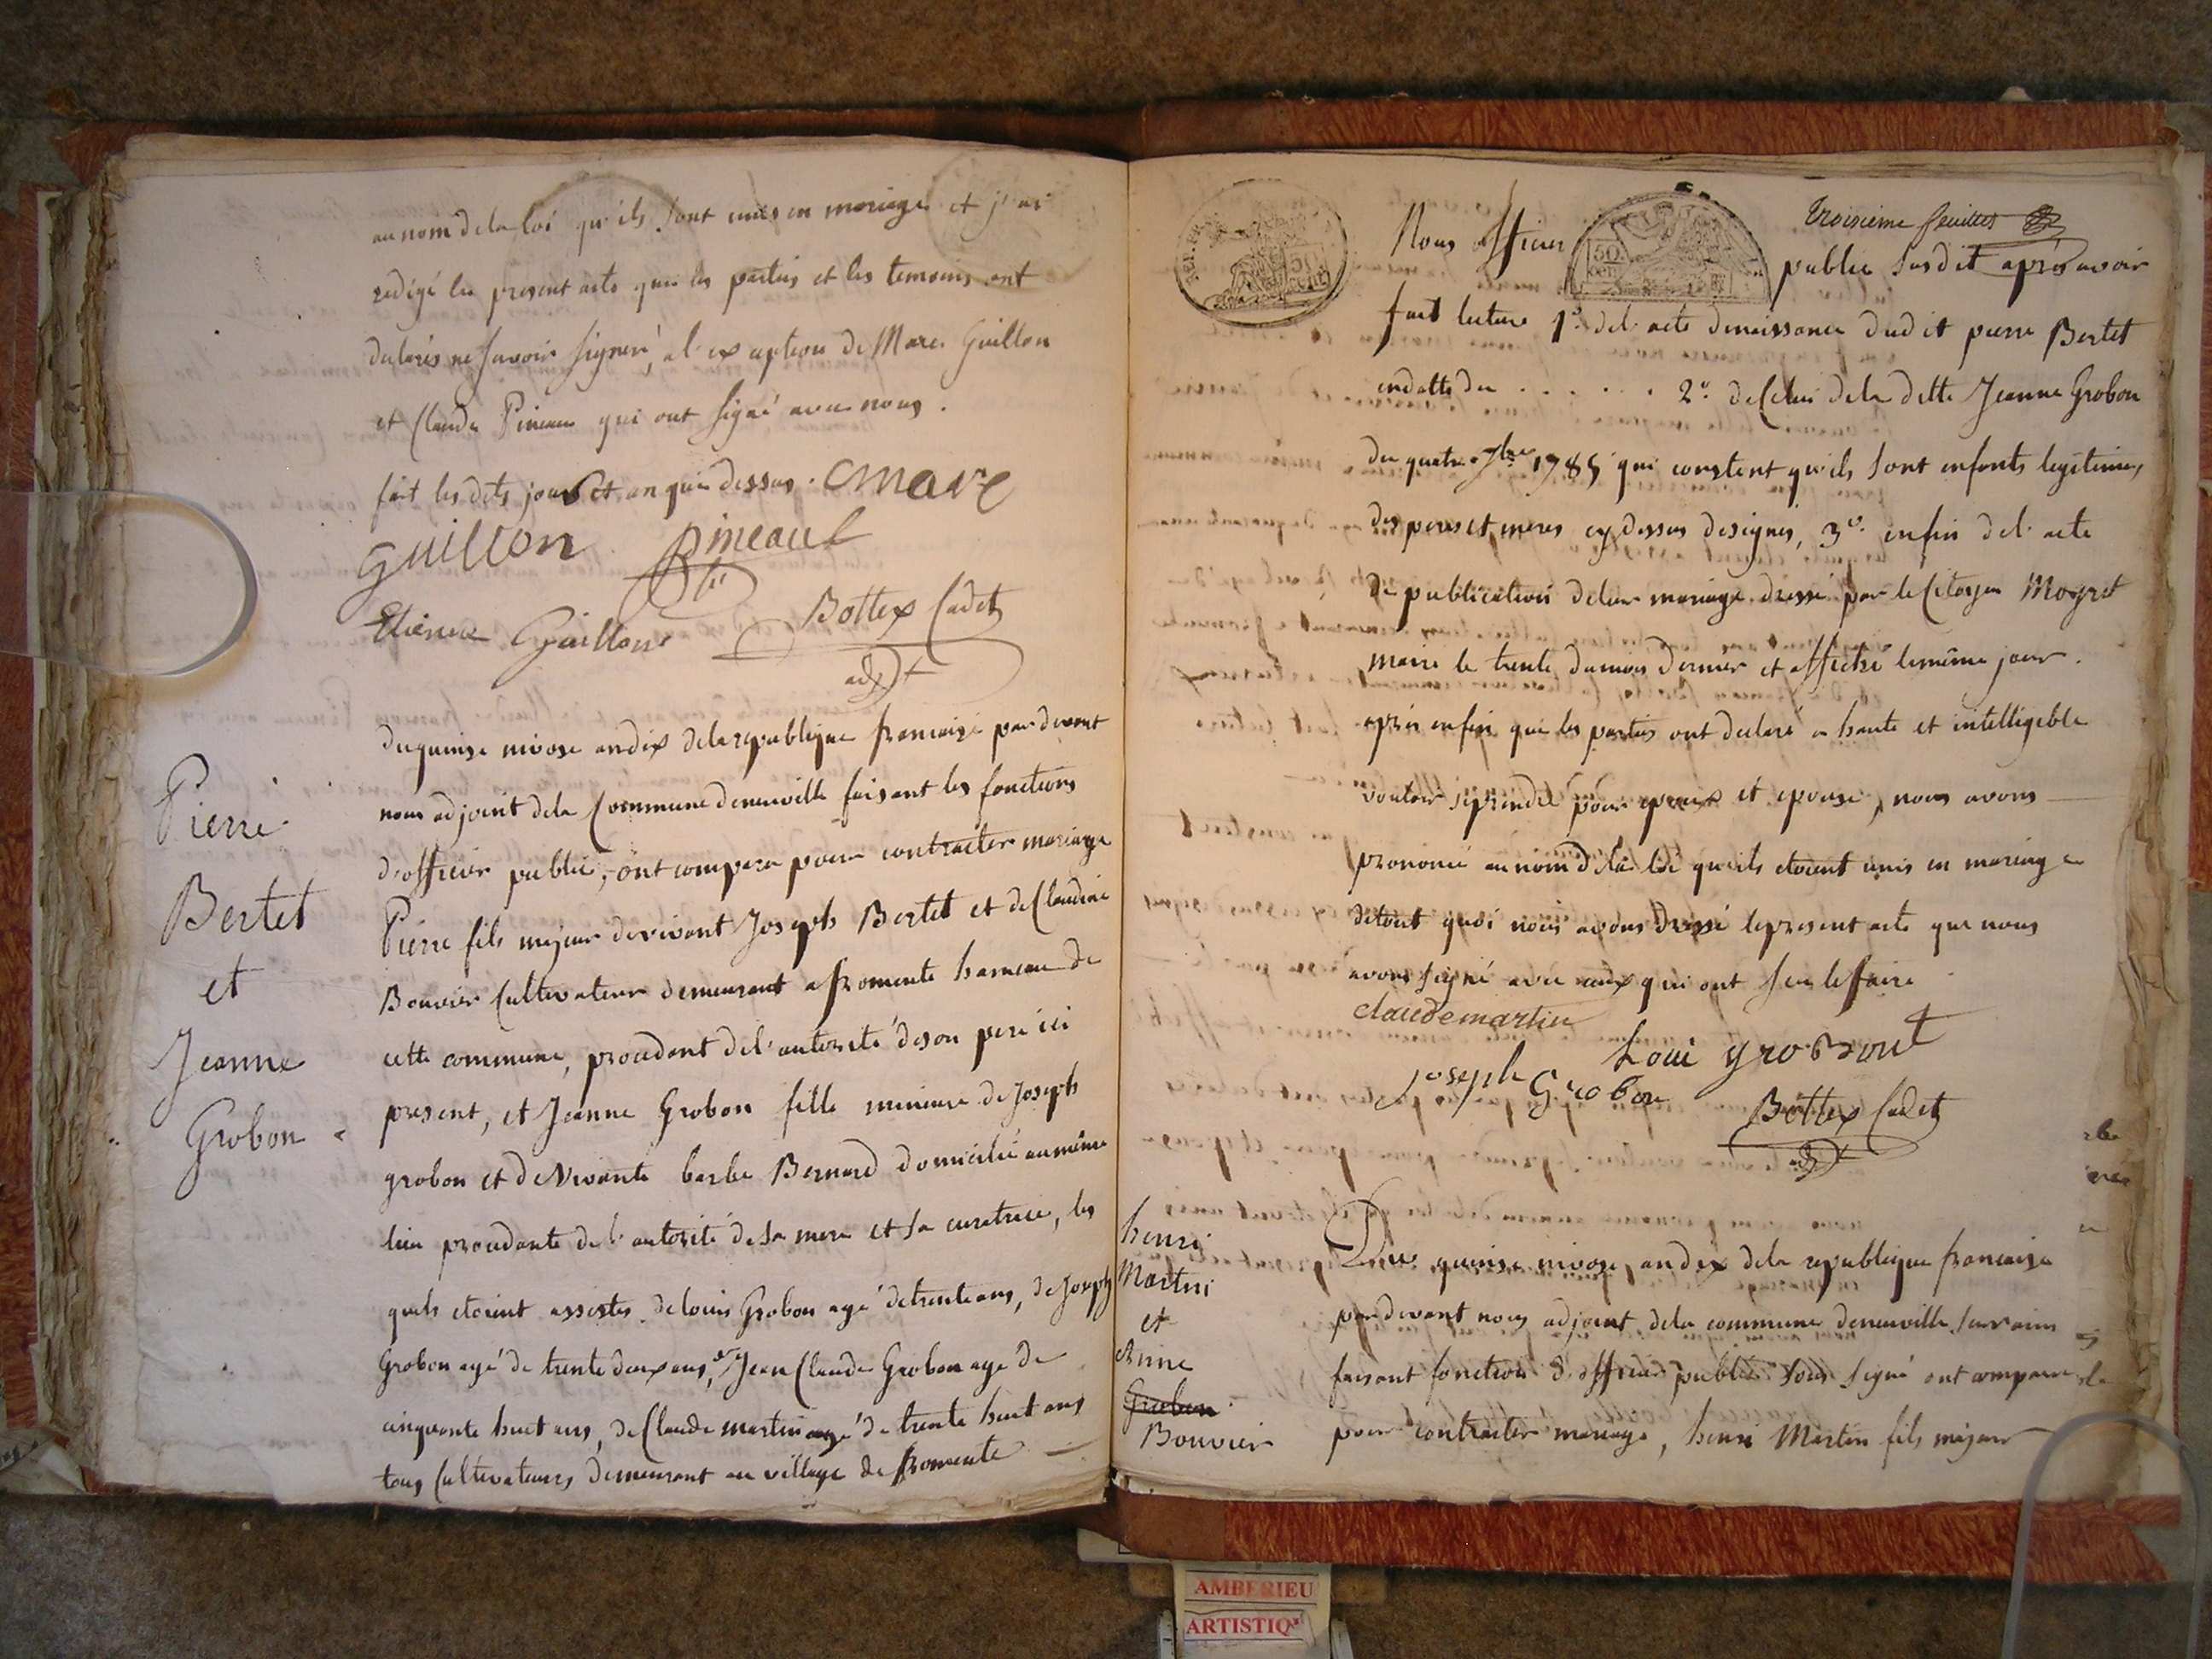 au nom de la loi qu'ils sont unis en mariage et j'ai
redigé le present acte que les parties et les temoins ont
declarés ne savoir signer, a l'exception de Marc Guillon
et Claude Pineau qui ont signé avec nous.
fait les dits jour et an que dessus. Marc
Guillon Pineaul
Etienne Guillon Bottex Cadet
adjt
Pierre
Bertet
et
Jeanne
Grobon
du quinse nivose an dix de la republique francaise par devant
nous adjoint de la Commune de neuville faisant les fonctions
d'officier public, ont comparu pour contracter mariage
Pierre fils majeur de vivant Joseph Bertet et de Claudine
Bouvier Cultivateur demeurant a fromente hameau de
cette commune, procedant de l'autorité de son pere ici
present, et Jeanne Grobon fille mineure de Joseph
grobon et de vivante barbe Bernard domicilié au même
lieu procedante de l'autorité de sa mere et sa curatrice, les
quels etoient assistes de louis Grobon agé de trente ans, de Joseph
Grobon agé de trente deux ans, de Jean Claude Grobon age de
cinquante huit ans, de Claude martin agé de trente huit ans
tous Cultivateurs demeurant au village de fromente
troisieme feuillet
50 cen
50 cen
Nous officier public susdit après avoir
fait lecture 1º. de l'acte de naissance dudit pierre Bertet
en datte du . . . . . . 2º. de Celui de la ditte Jeanne Grobon
du quatre 7bre 1785 qui constent qu'ils sont enfants legitimes
des peres et meres cy dessus designes, 3º. enfin de l'acte
de publication de leur mariage dressé par le Citoyen Moyret
maire le trente du mois dernier et affiché le même jour.
après enfin que les parties ont declaré a haute et intelligible
vouloir se prendre pour epoux et epouse, nous avons
prononcé au nom de la loi qu'ils etoient unis en mariage
de tout quoi nous avons dressé le present acte que nous
avons signé avec ceux qui ont seu le faire
claude martin
Loui groBont
joseph Grobon
Bottex Cadet
adjt
henri
Martin
et
Anne
Grobon
Bouvier
Du quinse nivose, an dix de la republique francaise
par devant nous adjoint de la commune de neuville sur ain
faisant fonction d'officier public sous signé ont comparu
pour contracter mariage, henri Martin fils majeur
AMBERIEU
ARTISTIQ